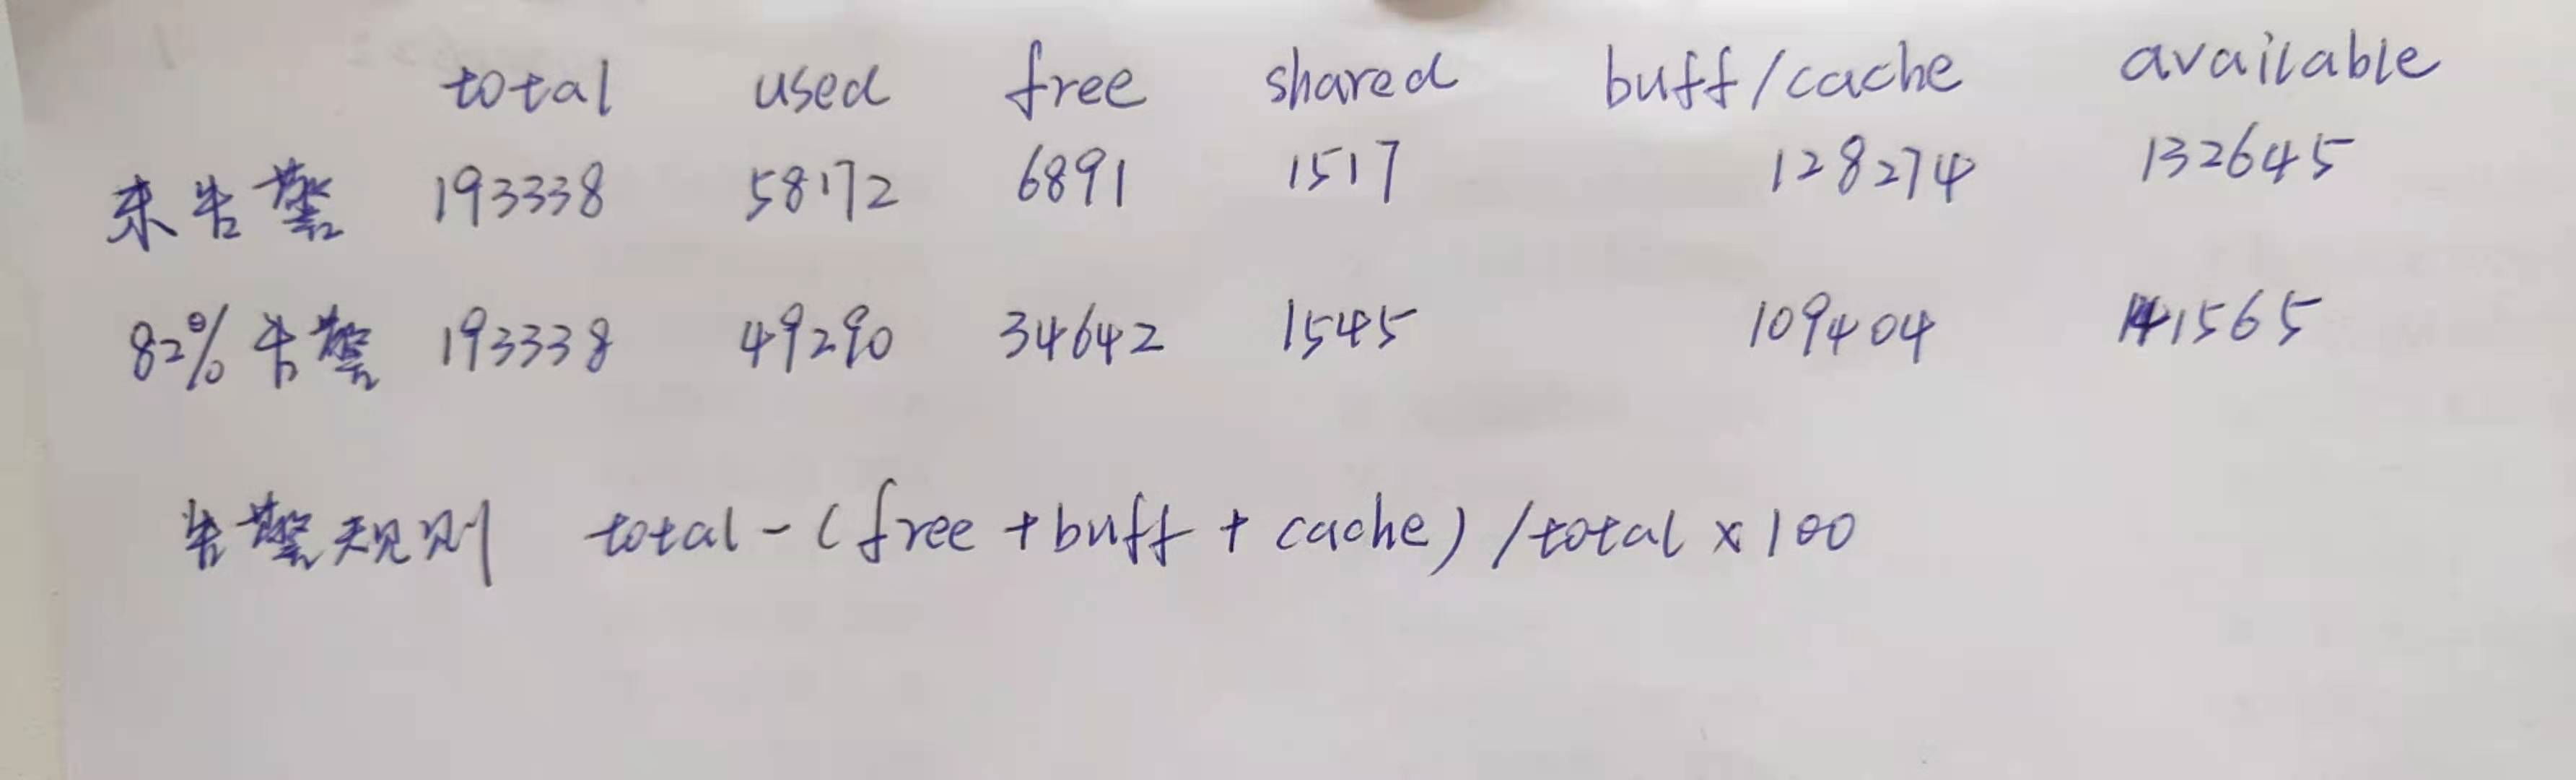 total used free shared buff/cache available
未告警 193338 58172 6891 1517 128274 132645
82%告警 193338 49290 34642 1545 109404 141565
告警规则 total-(free+buff+cache)/total×100